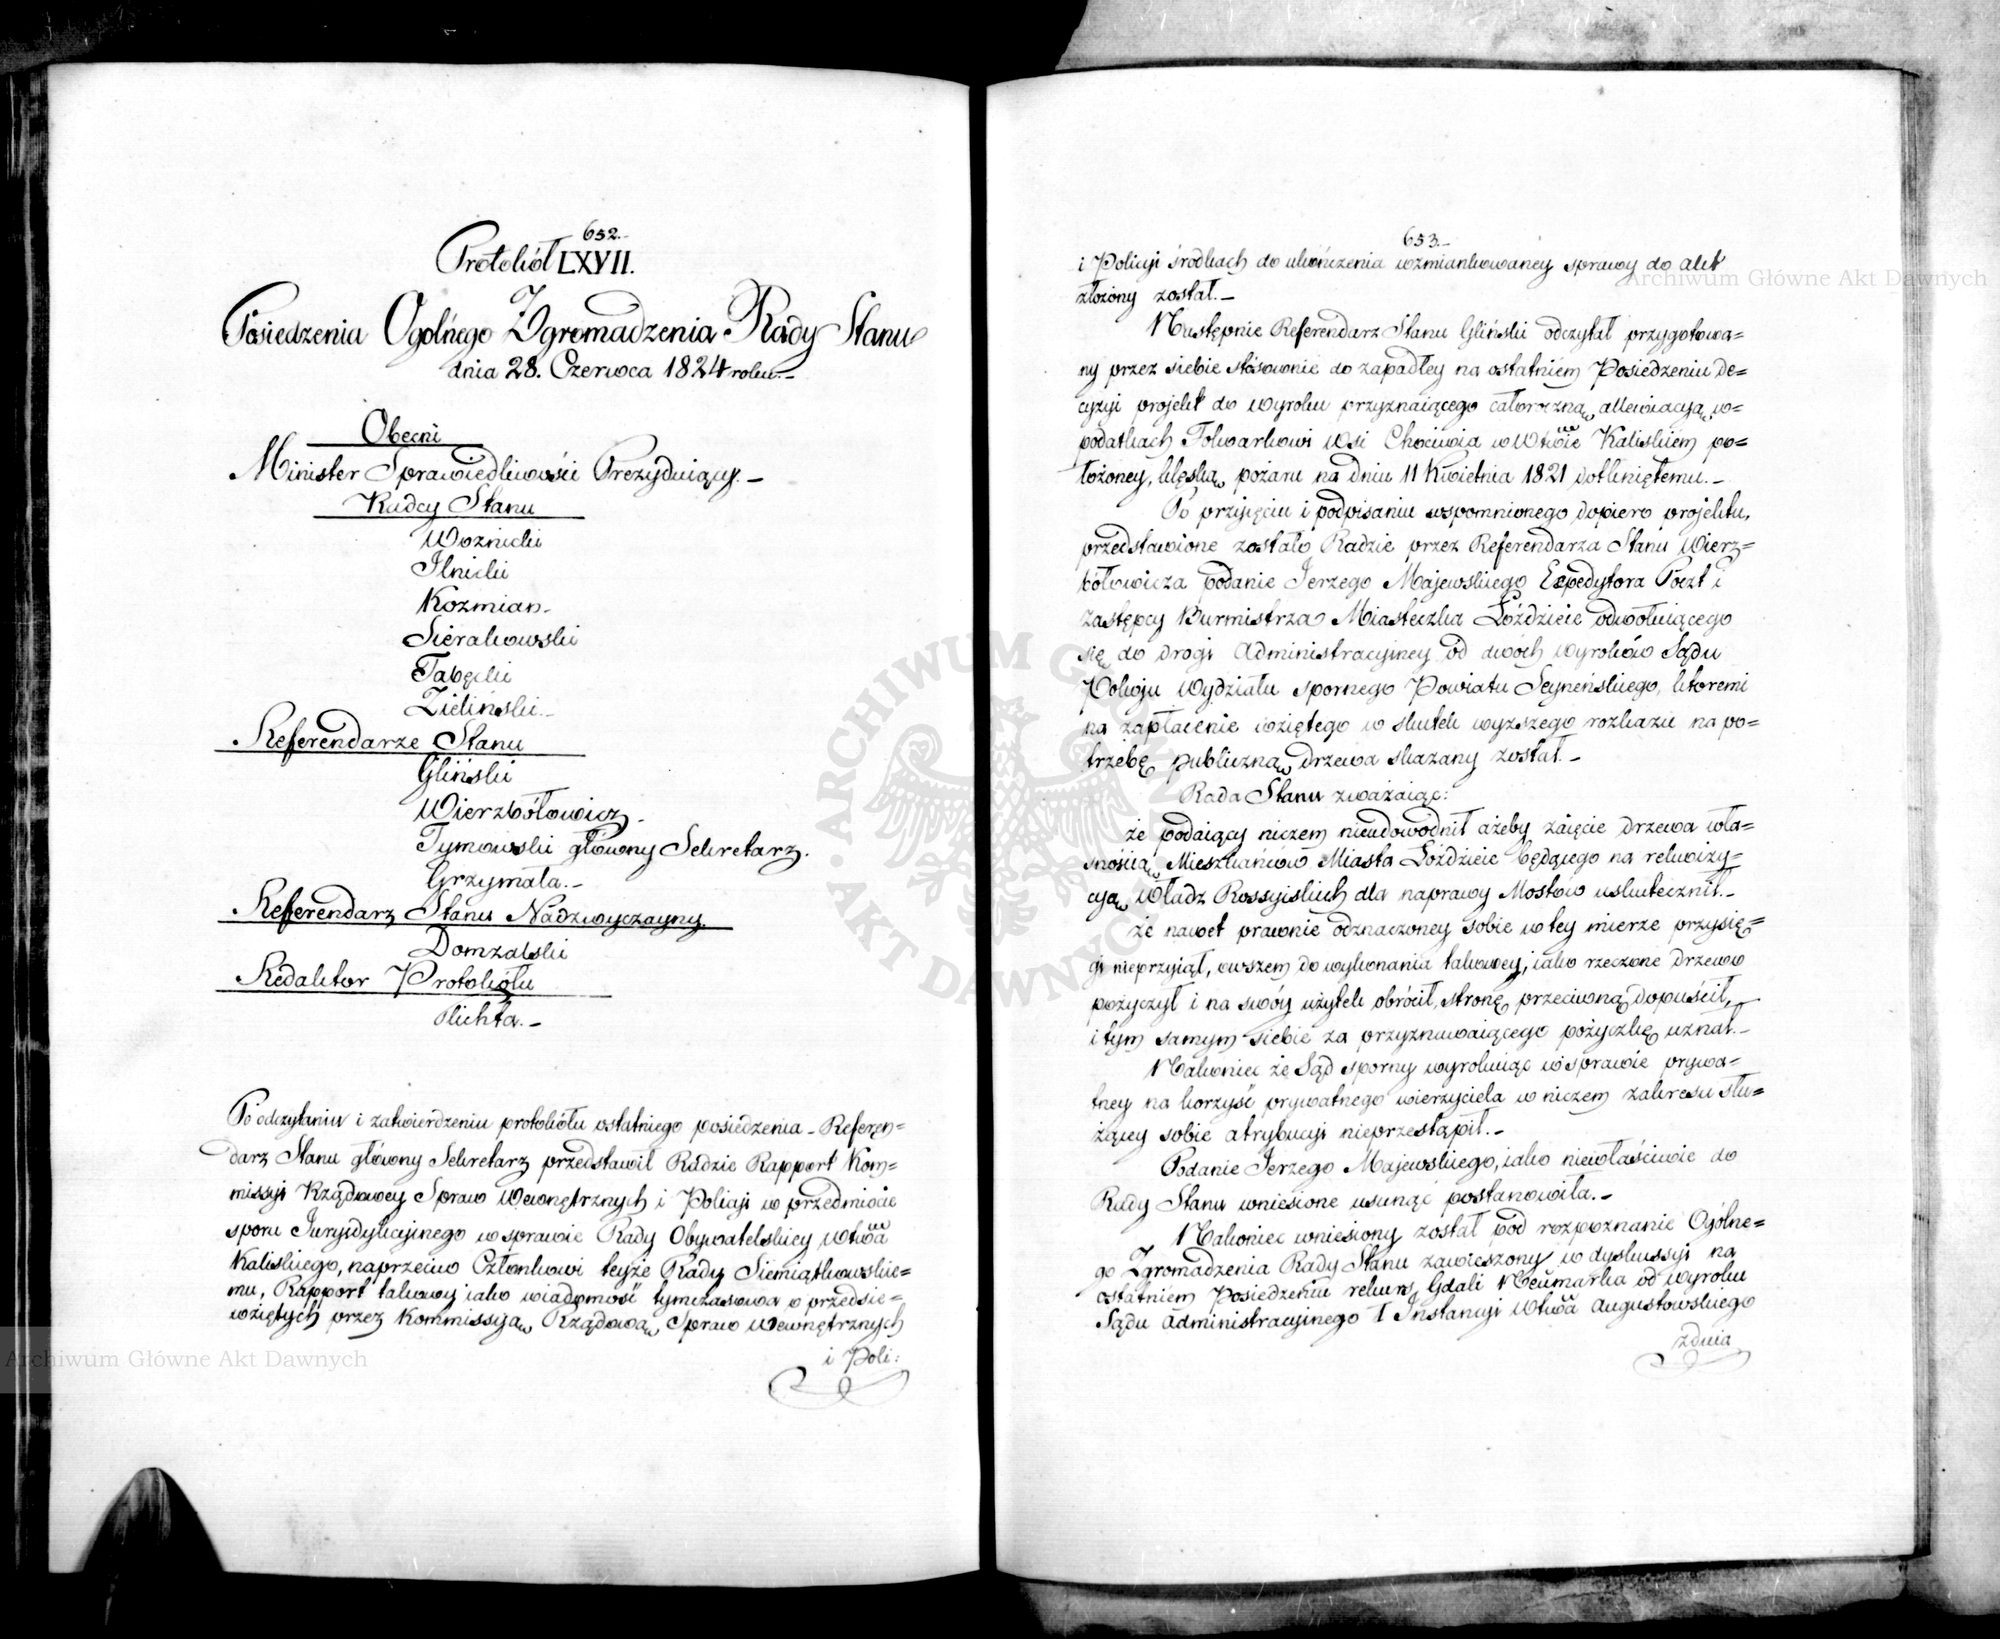 652.
Protokół LXVII.
Posiedzenia Ogolnego Zgromadzenia Rady Stanu
dnia 28. Czerwca 1824 roku.
Obecni
Minister Sprawiedliwości Prezyduiący.
Radcy Stanu
Woznicki
Ilnicki
Kozmian
Sierakowski
Tabęcki
Zieliński
Referendarze Stanu
Gliński
Wierzbółowicz
Tymowski główny Sekretarz.
Grzymała.
Referendarz Stanu Nadzwyczayny.
Domzalski
Redaktor Protokółu
Plichta.
Po odczytaniu i zatwierdzeniu protokółu ostatniego posiedzenia Referen=
darz Stanu główny Sekretarz przedstawił Radzie Rapport Kom=
missyi Rządowey Spraw Wewnętrznych i Policyi w przedmiocie
sporu Jurysdykcyinego w sprawie Rady Obywatelskiey Wtwa
Kaliskiego, naprzeciw Członkowi teyże Rady Siemiątkowskie=
mu, Rapport takowy iako wiadomość tymczasowa o przedsie=
wziętych przez Kommissyą Rządową Spraw Wewnętrznych
i Poli:
653.
i Policyi środkach do ukończenia wzmiankowaney sprawy do akt
złożony został.
Następnie Referendarz Stanu Gliński odczytał przygotowa=
ny przez siebie stósownie do zapadłey na ostatniem Posiedzeniu de=
cyzyi projekt do wyroku przyznaiącego całoroczną allewiacyą w=
podatkach Folwarkowi Wsi Chociwia w Wtwie Kaliskiem po=
łożoney, klęską pożaru na dniu 11 Kwietnia 1821 dotkniętemu.
Po przyięciu i podpisaniu wspomnionego dopiero projektu,
przedstawione zostało Radzie przez Referendarza Stanu Wierz=
bółowicza podanie Jerzego Majewskiego Expedytora Poczt i
zastępcy Burmistrza Miasteczka Łóździeie odwołuiącego
się do drogi Administracyiney od dwóch wyroków Sądu
Pokoju Wydziału spornego Powiatu Seyneńskiego, ktoremi
na zapłacenie wziętego w skutek wyzszego rozkazu na po=
trzebę publiczną drzewa skazany został.
Rada Stanu zważaiąc:
że podaiący niczem nieudowodnił ażeby zaięcie drzewa wła=
snością Mieszkańców Miasta Łóździeie będącego na rekwizy=
cyą Władz Rossyiskich dla naprawy Mostów uskutecznił.
że nawet prawnie odznaczoney sobie w tey mierze przysię=
gi nieprzyiął, owszem do wykonania takowey, iako rzeczone drzewo
pożyczył i na swóy użytek obrócił, stronę przeciwną dopuścił,
i tym samym siebie za przyznawaiącego pożyczkę uznał.
Nakoniec że Sąd sporny wyrokuiąc w sprawie prywa=
tney na korzyść prywatnego wierzyciela w niczem zakresu słu=
żącey sobie atrybucyi nieprzestąpił.
Podanie Jerzego Majewskiego, iako niewłaściwie do
Rady Stanu wniesione usunąć postanowiła.
Nakoniec wniesiony został pod rozpoznanie Ogólne=
go Zgromadzenia Rady Stanu zawieszony w dyskussyi na
ostatniem Posiedzeniu rekurs Gdali Neumarka od wyroku
Sądu Administracyinego I Instancyi Wtwa Augustowskiego
z dnia
Archiwum Główne Akt Dawnych
Archiwum Główne Akt Dawnych
ARCHIWUM GŁÓWNE AKT DAWNYCH